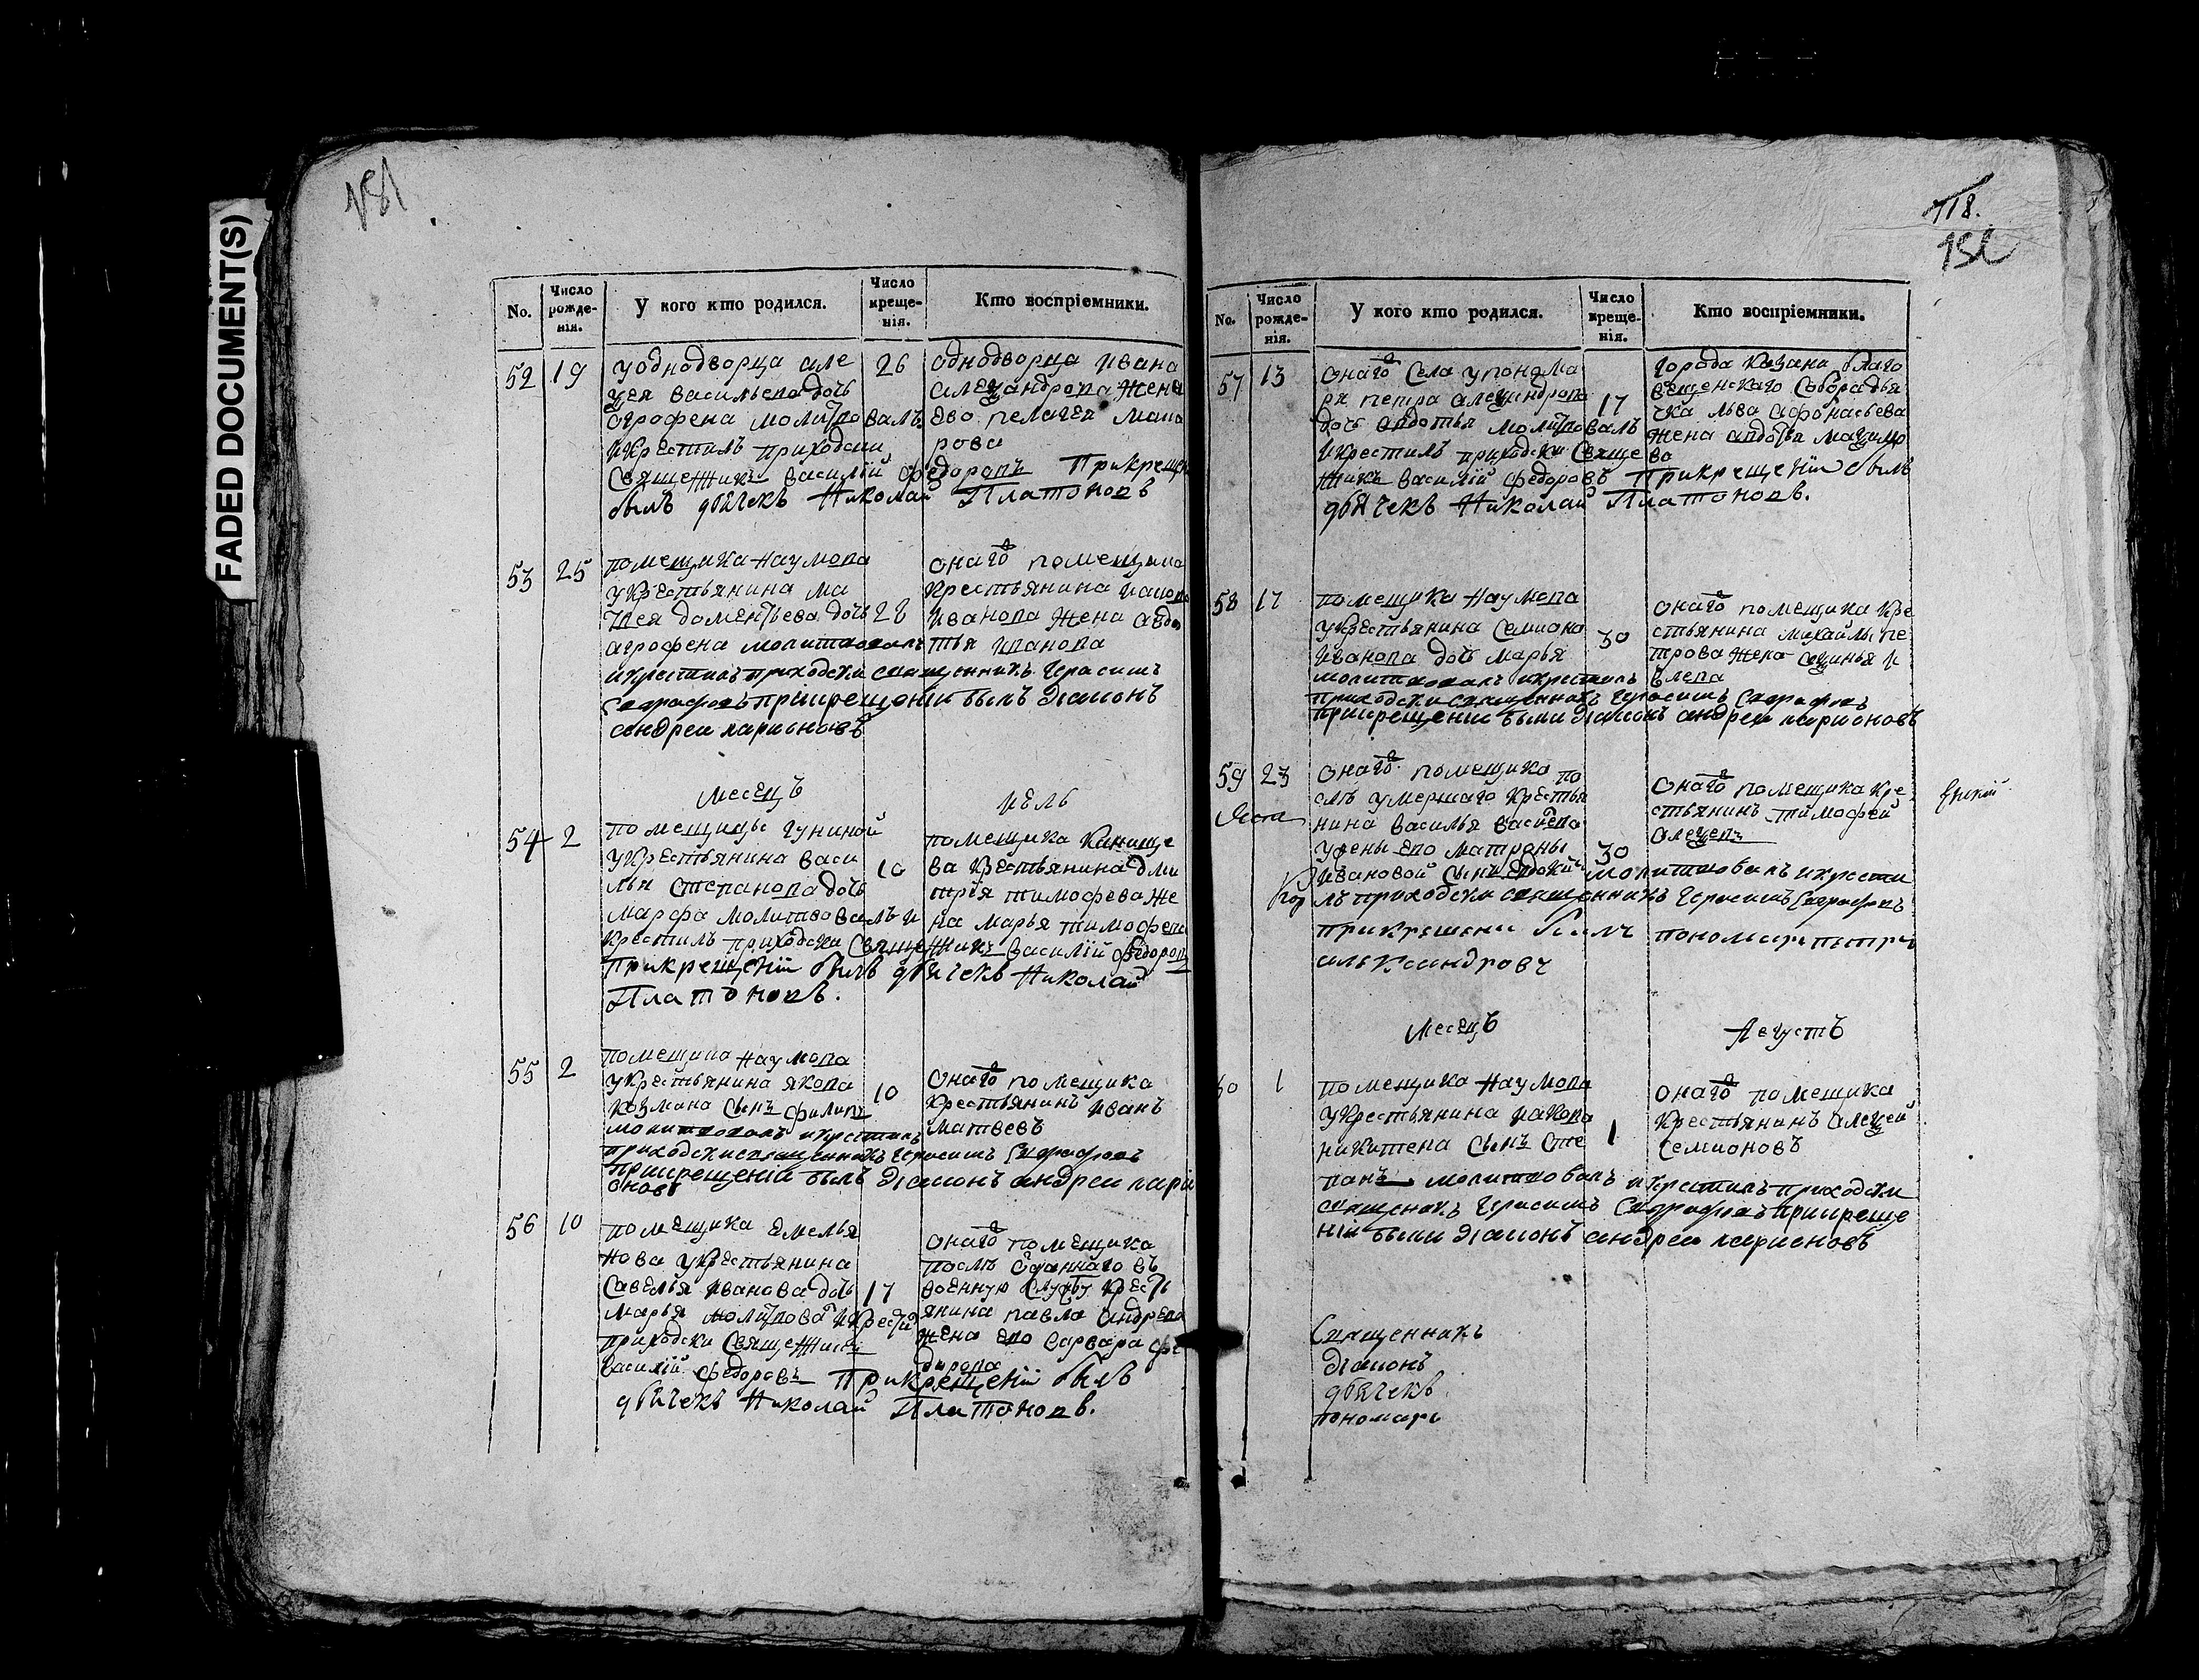 FADED DOCUMENT(S)
181
No.
Число рожденія.
У кого кто родился.
Число крещенія.
Кто воспріемники.
52 19
уоднодворца але
ѯея васильева дочь
огрофена молитвовалъ
икрестилъ приходски
священникъ василій федоровъ Прикрещен
былъ дьячекъ Николай Платоновъ
26
однодворца ивана
алеѯандрова жена
ево пелагея мака
рова
53 25
помещика наумова
укрестьянина ма
тоея доментьева дочь 28
агрофена молитвовалъ
икрестилъ приходски священникъ Герасимъ
Серафовъ прикрещеніи былъ діаконъ
андреи ларионовъ
онаго помещика
крестьянина иакова
иванова жена авдо
тья иванова
месецъ июль
54 2
помещицы гуниной
укрестьянина васи
лья степанова дочь
марфа молитвовалъ и
крестилъ приходски священникъ василій федоровъ
Прикрещеніи былъ дьячекъ Николай
Платоновъ.
10
помещика канище
ва крестьянина дми
трія тимофева же
на марья тимофева
55 2
помещика наумова
укрестьянина якова
козмина сынъ филипъ
молитвовалъ икрестилъ
приходски священникъ Герасимъ
прикрещеніи былъ діаконъ андреи лари
оновъ
10
онаго помещика
крестьянинъ иванъ
матвеевъ
56 10
помещика емелья
нова укрестьянина
савелья иванова дочь 17
марья молитвова икрести
приходски священникъ
василій федоровъ Прикрещеніи былъ
дьячекъ Николай Платоновъ.
онаго помещика
после отданнаго въ
военную службу кресть
янина павла андрева
жена ево варвара фе
дорова
118.
182
No.
Число рожденія.
У кого кто родился.
Число крещенія.
Кто воспріемники.
57 13
онаго села упонома
ря петра алеѯандрова
дочь авдотья молитвовалъ
икрестилъ приходски свяще
нникъ василій федоровъ Прикрещеніи былъ
дьячекъ Николай Платоновъ.
17
города казани благо
вещенскаго собора дья
чка льва афонасьева
жена авдотья маѯимо
ва
58 17
помещика наумова
укрестьянина семиона
иванова дочь марья
молитвовалъ икрестилъ
приходски священникъ Герасимъ
прикрещеніи были діаконъ андреи ларионовъ
30
онаго помещика кре
стьянина михайлы пе
трова жена
59 23
онаго помещика по
слѣ умершаго крестья
нина василья васильева
ужены ево матроны
ивановой сынъ
30
молитвовалъ икрести
лъ приходски священникъ Герасимъ
прикрещени былъ пономарь петръ
алькsандровъ
онаго помещика кре
стьянинъ тимофей
алеѯевъ
месецъ Августъ
60 1
помещика наумова
укрестьянина иакова
никитена сынъ сте
панъ молитвовалъ икрестилъ приходски
священникъ Герасимъ прикреще
ніи были діаконъ андреи ларионовъ
1
онаго помещика
крестьянинъ алеѯей
семионовъ
Священникъ
діаконъ
дьячекъ
пономарь